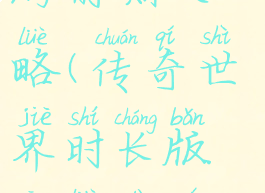 lüè chuán qí shì
略(传奇世
jiè shí cháng bǎn
界时长版